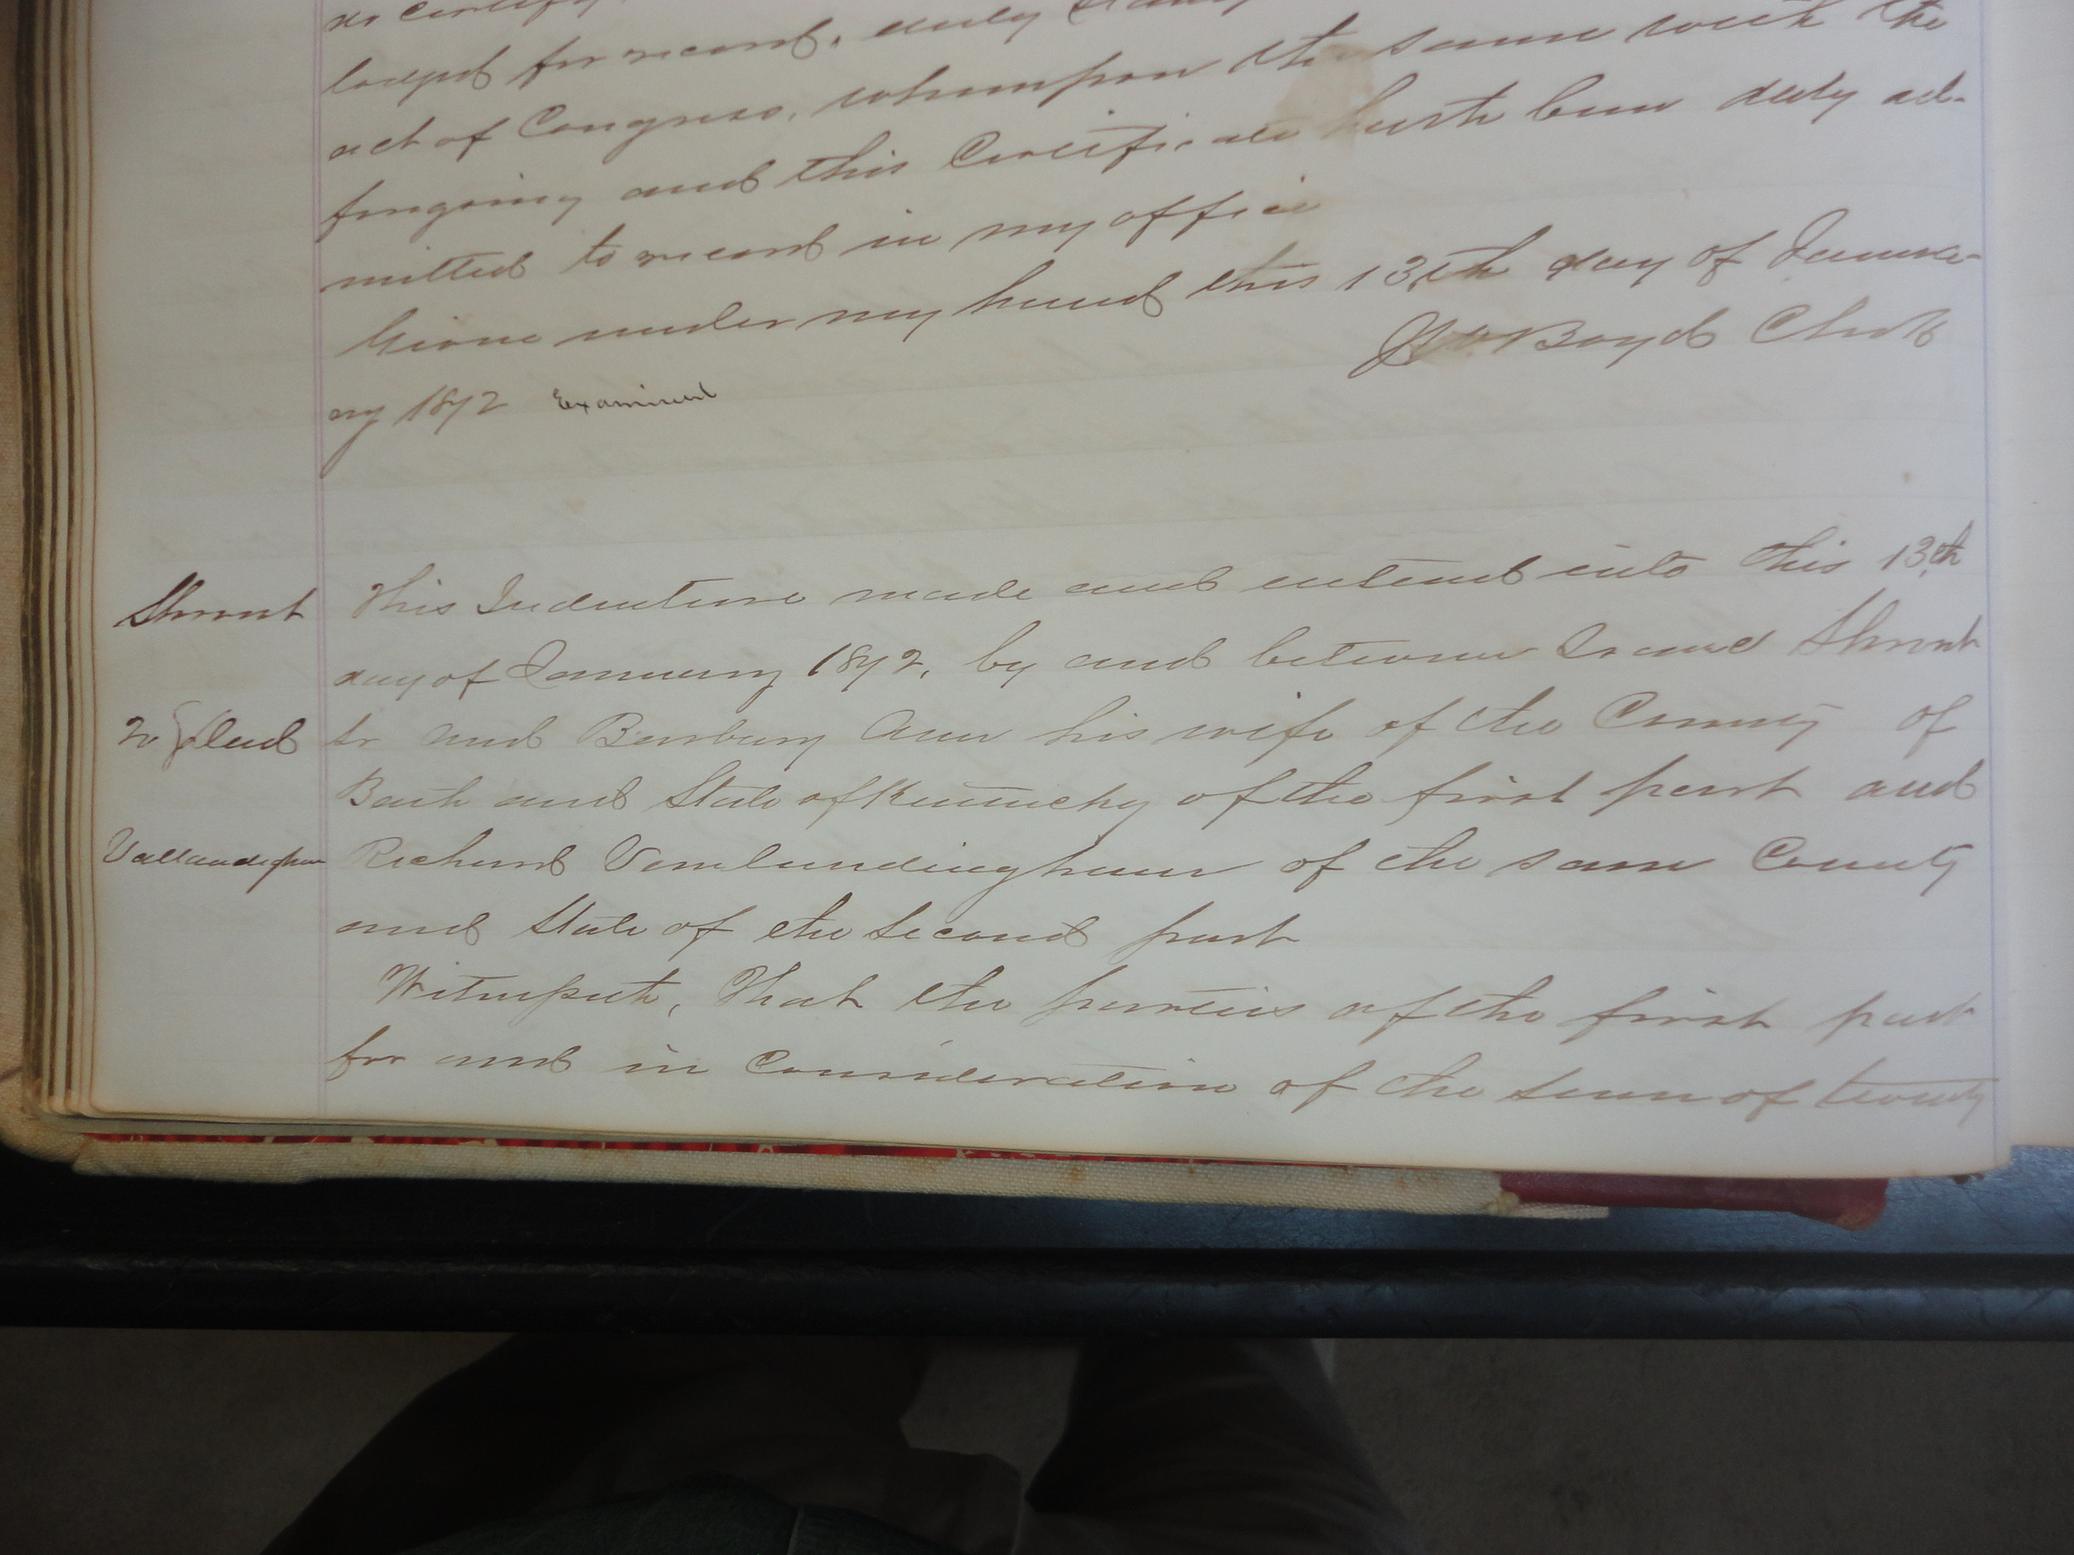 do certify
lodged for record, duly
act of Congress, whereupon the same with the
foregoing and this Certificate hath been duly ad-
mitted to record in my office
Given under my hand this 13th day of Janua-
ry 1872 Examined
Boyd Clerk
Shrout This Indenture made and entered into this 13th
day of January 1872, by and between Israel Shrout
to } Deed Sr and Barbary Ann his wife of the County of
Bath and State of Kentucky of the first part and
Vallandigham Richard Vanlandingham of the same County
and State of the Second part
Witnesseth, That the parties of the first part
for and in Consideration of the sum of twenty